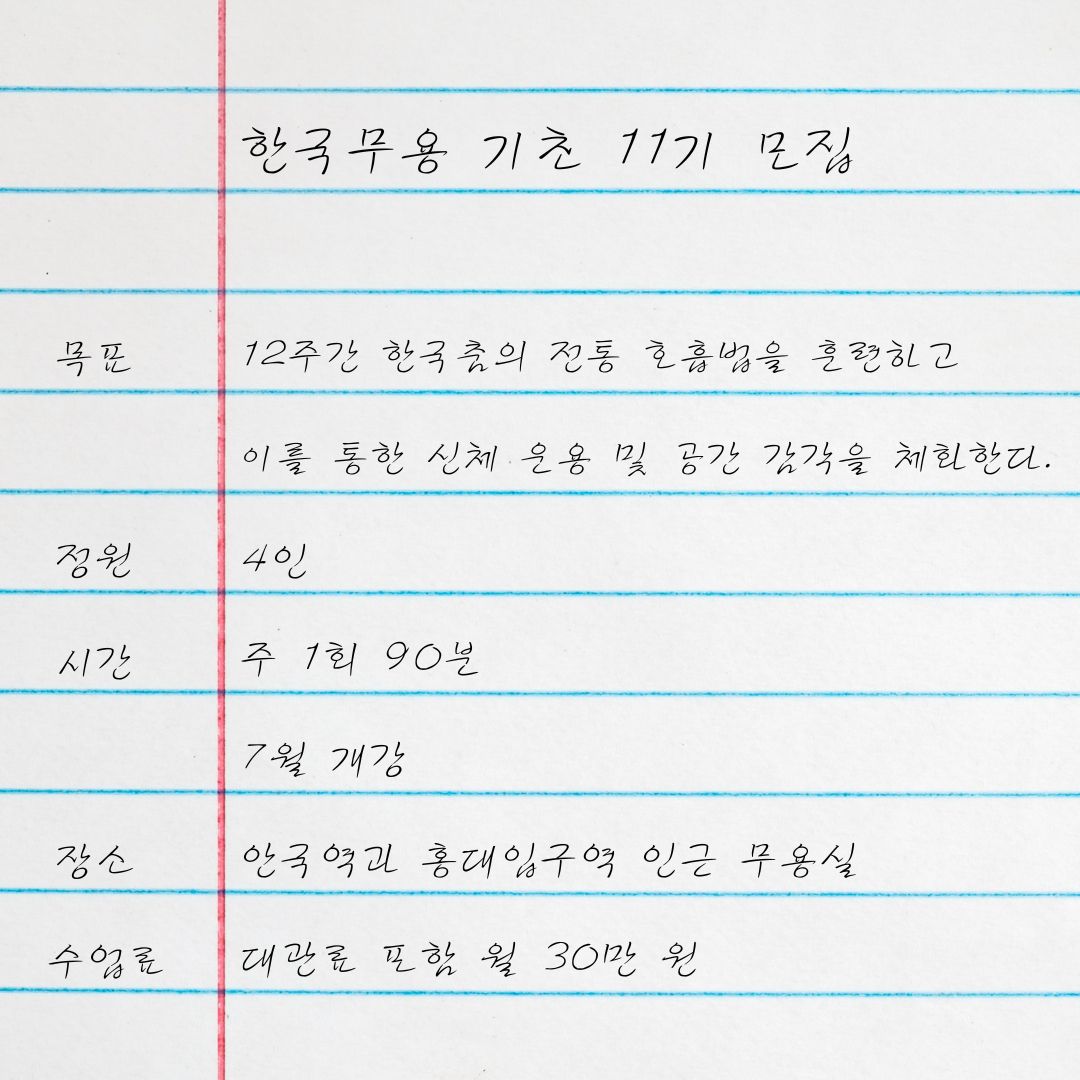 한국무용 기초 11기 모집
목표 12주간 한국춤의 전통 호흡법을 훈련하고
이를 통한 신체 운용 및 공간 감각을 체화한다.
정원 4인
시간 주 1회 90분
7월 개강
장소 안국역과 홍대입구역 인근 무용실
수업료 대관료 포함 월 30만 원